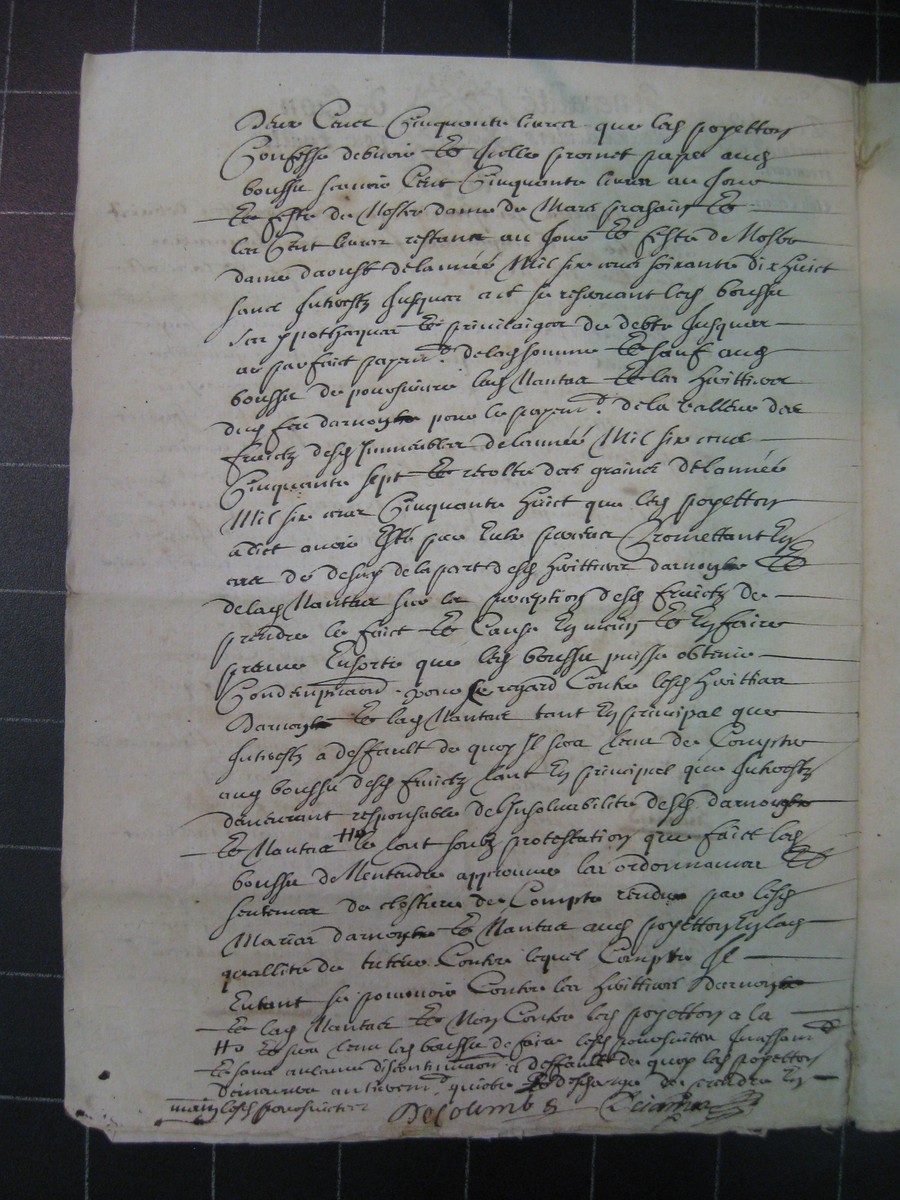 deux Cent Cinquante livres que led poyetton
Confesse debvoir Et Icelle promet payer aud
bousse scavoir Cent Cinquante livres au Jour
Et feste de Nostre dame de Mars prochain Et
les Cent livres restans au Jour Et feste de Nostre
dame daoust de lannée Mil six cens soixante dix huict
sans Interestz Jusques a ce se reservant led bousse
ses ypotheques Et privilaiges du debte Jusques
au parfaict payem.t de lad somme Et sauf aud
bousse de poursuivre lad Nantas Et les heritiers
dud feu darnoy pour le payem.t de la valleur des
fruictz desd Immeubles de lannée Mil six cens
Cinquante sept Et recolte des grains de lannée
Mil six cens Cinquante huict que led poyetton
a dict avoir Esté par Eulx Promettant En
cas de de la part desd heritiers darnoy Et
de lad Nantas sur la perception desd fruictz de
prendre le faict Et Cause En main Et En faire
preuve Ensorte que led bousse puisse obtenir
Condempnaon pour ce regard Contre lesd heritiers
Darnoy Et lad Nantas tant En principal que
Interestz a deffault de quoy Il sera tenu de Compter
aud bousse desd fruictz tant En principal que Interestz
demeurant responsable de lInsolvabilité desd darnoy
Et Nantas H° le tout soubz protestation que faict led
bousse de Nentendre approuver les ordonnances Et
sentence de closture de Compte rendu par lesd
Mariés darnoy Et Nantas aud poyetton En lad
quallité de tuteur Contre lequel Compte Il
Entant se pourvoir Contre les heritiers Darnoy
Et lad Nantas Et Non Contre led poyetton a la
H° Et sera tenu led bousse de faire lesd poursuittes
Et sans aulcune discontinuaon a deffault de quoy led poyetton
demeurera quicte Et descharge de prendre En
main lesd poursuittes DeColombe